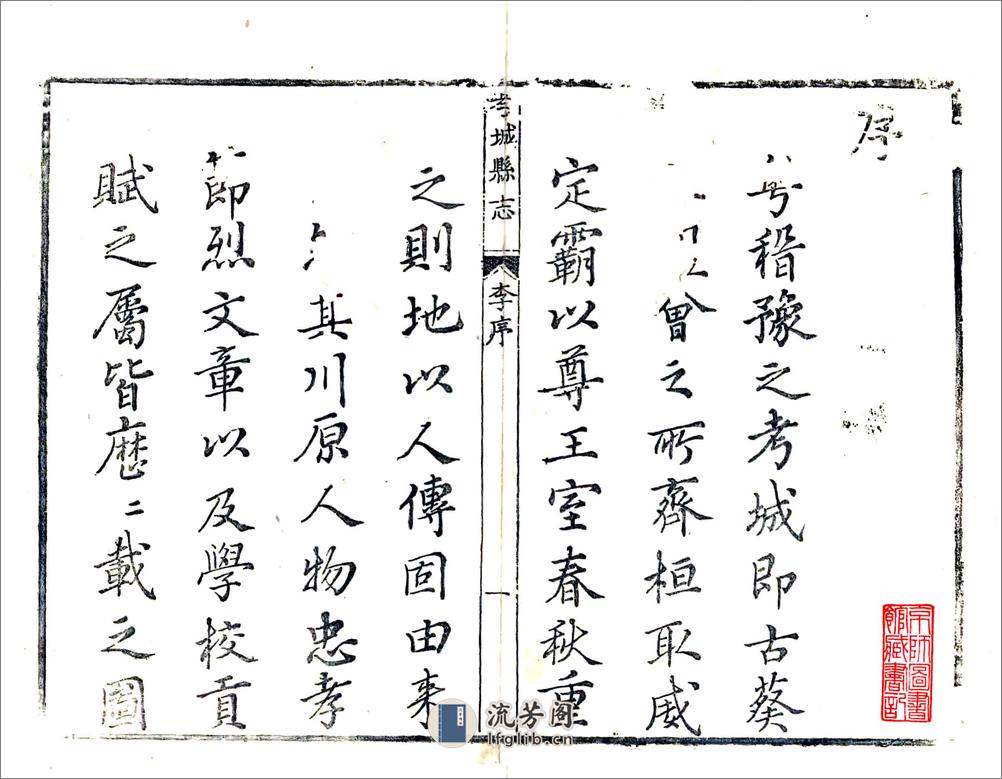 序
稽豫之考城即古葵
會之所齊桓取威
定霸以尊王室春秋重
考城縣志
李序
一
之則地以人傳固由來
其川原人物忠孝
節烈文章以及學校貢
賦之屬皆歷二載之圖
京師圖書館藏書記
流芳阁
lfglib.cn